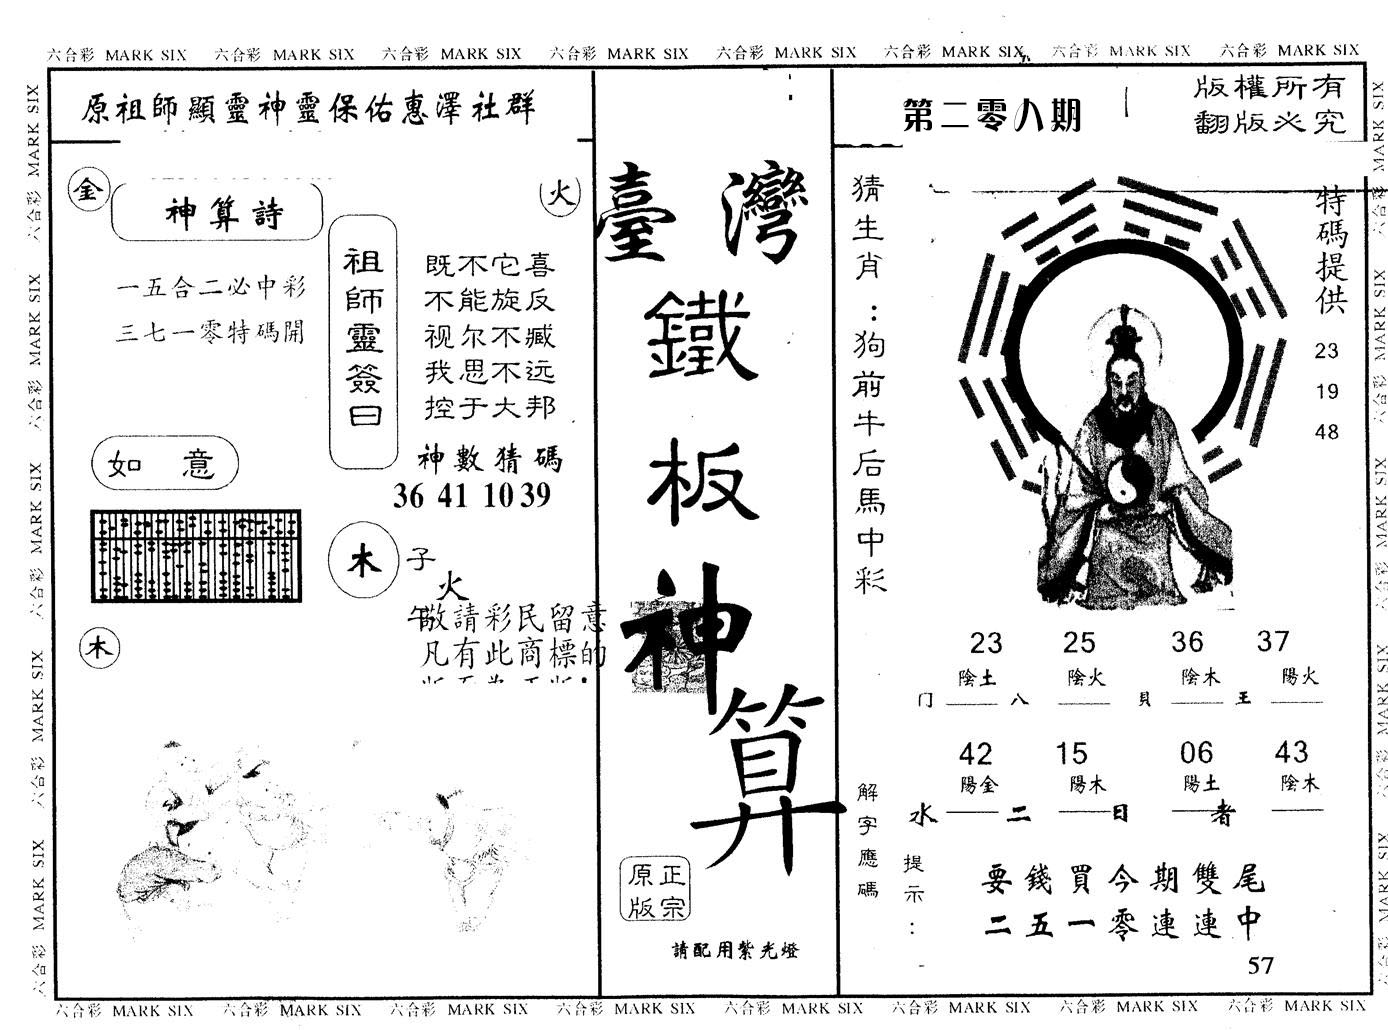 六合彩 MARK SIX 六合彩 MARK SIX 六合彩 MARK SIX 六合彩 MARK SIX 六合彩 MARK SIX 六合彩 MARK SIX 六合彩 MARK SIX 六合彩 MARK SIX
原祖師顯靈神靈保佑惠澤社群
金
神算詩
火
一五合二必中彩
三七一零特碼開
祖師靈簽曰
既不它喜
不能旋反
视尔不臧
我思不远
控于大邦
神數猜碼
36 41 10 39
如 意
木
子
火
午
敬請彩民留意
凡有此商標的
木
臺灣
鐵
板
神
算
正宗
原版
請配用紫光燈
第二零八期
版權所有
翻版必究
猜生肖：狗前牛后馬中彩
特碼提供
23
19
48
23 25 36 37
陰土 陰火 陰木 陽火
门 八 貝 王
42 15 06 43
陽金 陽木 陽土 陰木
水 二 日 者
解字應碼
提示：
要錢買今期雙尾
二五一零連連中
57
六合彩 MARK SIX 六合彩 MARK SIX 六合彩 MARK SIX 六合彩 MARK SIX 六合彩 MARK SIX 六合彩 MARK SIX 六合彩 MARK SIX 六合彩 MARK SIX
六合彩 MARK SIX 六合彩 MARK SIX 六合彩 MARK SIX 六合彩 MARK SIX 六合彩 MARK SIX
六合彩 MARK SIX 六合彩 MARK SIX 六合彩 MARK SIX 六合彩 MARK SIX 六合彩 MARK SIX